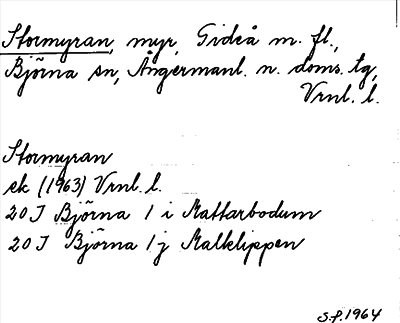 Stormyran, myr, Gideå m. fl.,
Björna sn, Ångermanl. n. doms. tg,
Vrnl. l.
Stormyran
ek (1963) Vrnl. l.
20 J Björna 1 i Mattarbodum
20 J Björna 1 j Malklippen
S.f. 1964